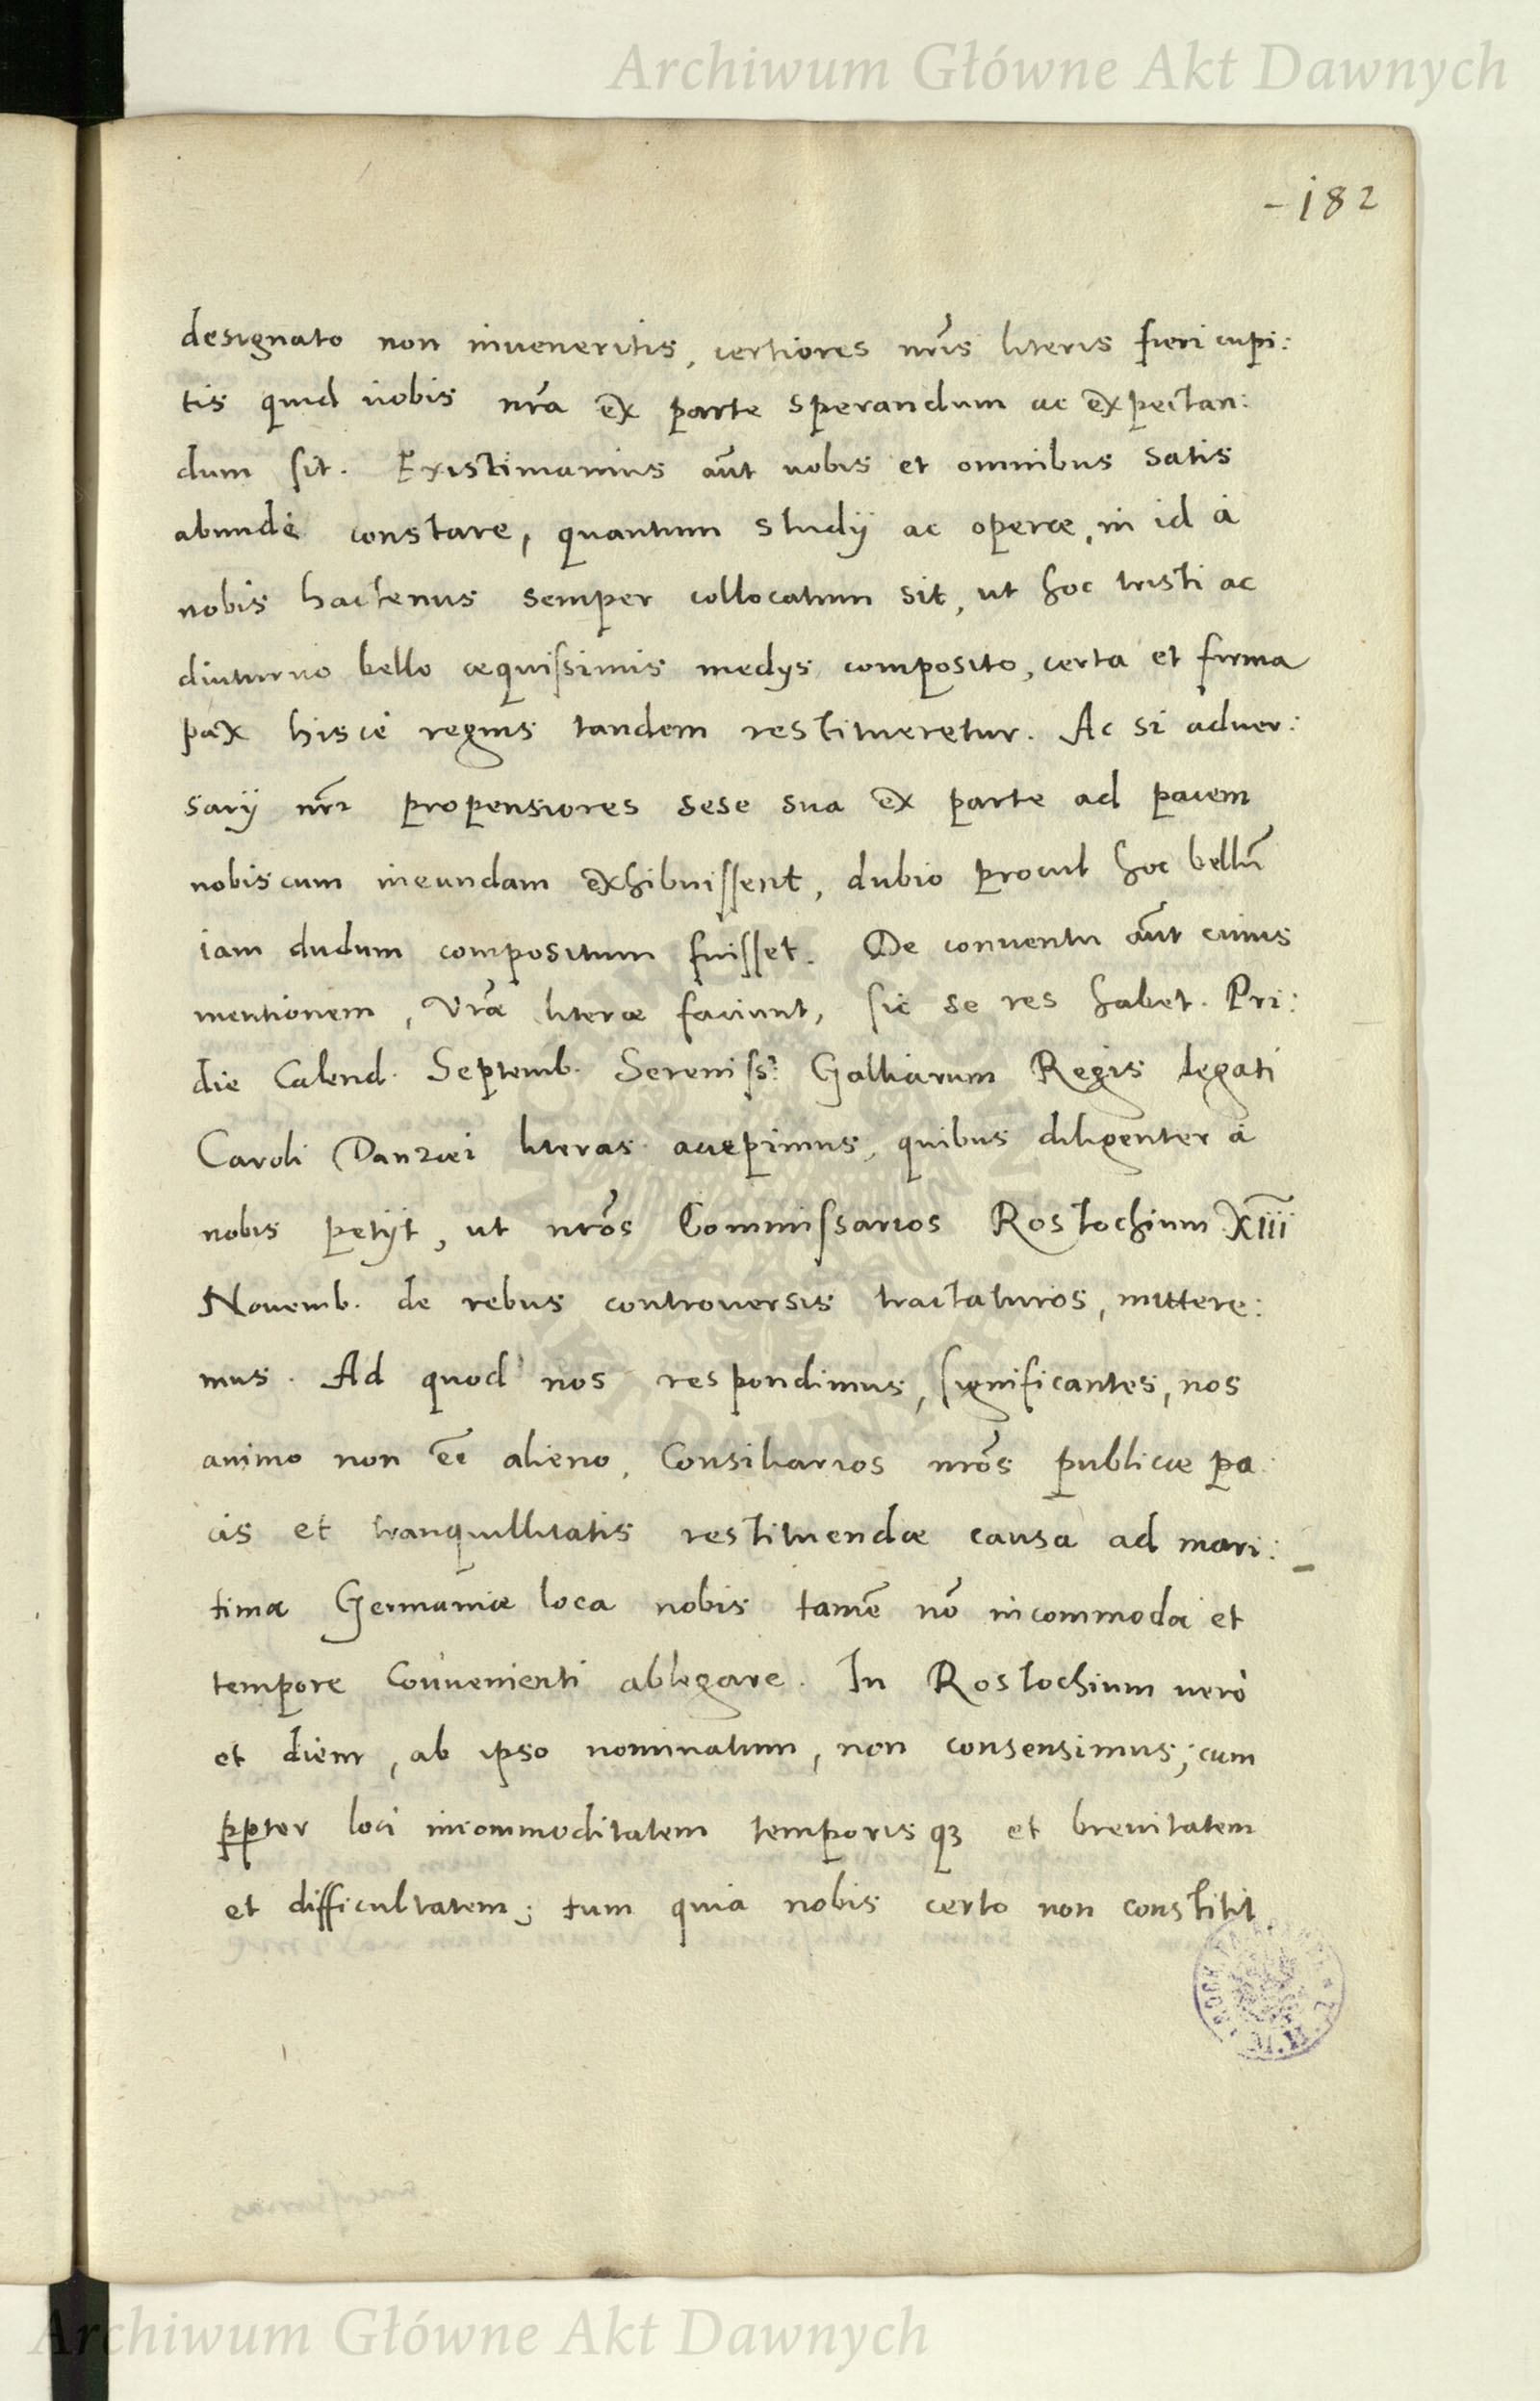 Archiwum Główne Akt Dawnych
-182
designato non inveneritis, certiores nr̃is literis fieri cupi:
tis quid vobis nr̃a ex parte sperandum ac expectan:
dum sit. Existimamus aũt vobis et omnibus satis
abundè constare, quantum studij ac operæ, in id à
nobis hactenus semper collocatum sit, ut hoc tristi ac
diuturno bello æquissimis medijs composito, certa et firma
pax hisce regnis tandem restitueretur. Ac si aduer:
sarij nr̃i propensiores sese sua ex parte ad pacem
nobiscum ineundam exhibuissent, dubio procul hoc bellũ
iam dudum compositum fuisset. De conuentu aũt cuius
mentionem, vr̃æ literæ faciunt, sic se res habet. Pri:
die Calend. Septemb. Sereniss: Galliarum Regis legati
Caroli Danzæi literas accepimus, quibus diligenter à
nobis petijt, ut nr̃os Commissarios Rostochium XIII
Nouemb. de rebus controuersis tractaturos, mittere:
mus. Ad quod nos respondimus, significantes, nos
animo non eẽ alieno, Consiliarios nr̃os publicæ pa:
cis et tranquillitatis restituendæ causa ad mari:
tima Germaniæ loca nobis tamẽ nõ incommoda et
tempore conuenienti ablegare. In Rostochium verò
et diem, ab ipso nominatum, non consensimus; cum
ꝓpter loci incommoditatem temporisqꝫ et breuitatem
et difficultatem; tum quia nobis certo non constitit
Archiwum Główne Akt Dawnych